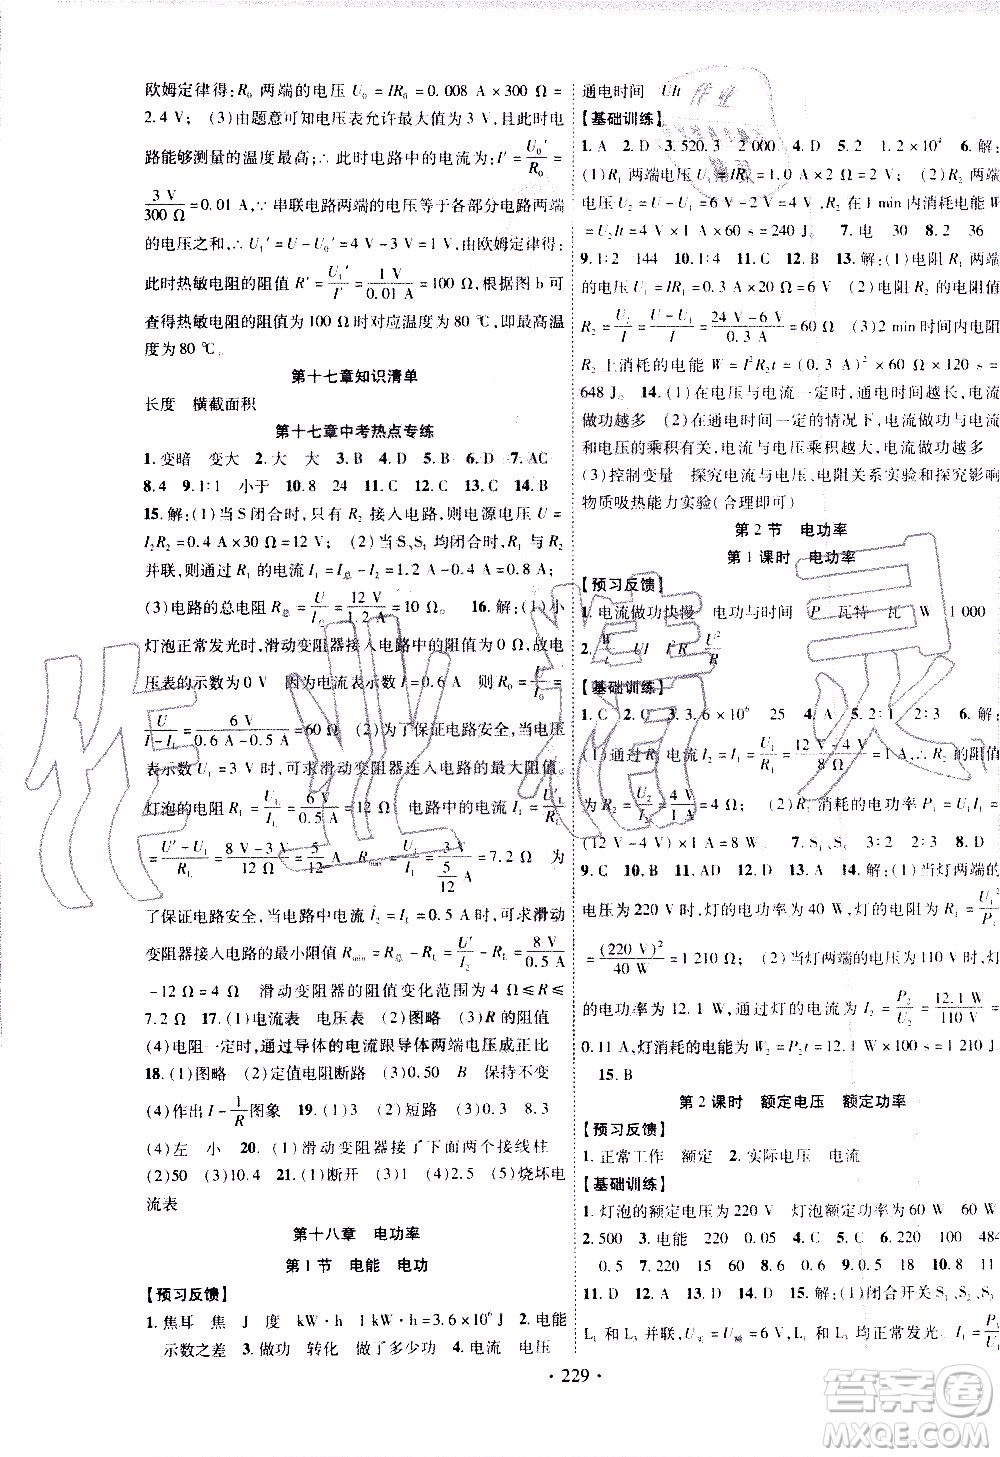 欧姆定律得:R₀ 两端的电压 U₀ = IR₀ = 0.008 A×300 Ω=
2.4 V (3)由题意可知电压表允许最大值为3 V,当电
路能够测量的温度最高时,此时电路中的电流为:I' = U₀'/R₀ =
3 V/300 Ω = 0.01 A,∵ 串联电路两端的电压等于各部分电路两端
的电压之和,∴ U₁' = U − U₀' = 4 V − 3 V = 1 V,由欧姆定律得:
此时热敏电阻的阻值 R' = U₁'/I' = 1 V/0.01 A = 100 Ω,由图 b 可
查得热敏电阻的阻值为100 Ω时对应温度为80 ℃,即最高温
度为80 ℃.
第十七章知识清单
长度 横截面积
第十七章中考热点专练
1.变暗 变大 2.大 大 3.B 4.D 5.D 6.D 7.AC
8.4 9.1∶1 小于 10.8 24 11.C 12.C 13.C 14.B
15.解:(1)当S闭合时,只有 R₂ 接入电路,则电源电压 U =
I₂R₂ = 0.4 A×30 Ω = 12 V (2)当S、S₁ 均闭合时,R₁ 与 R₂
并联,则通过 R₁ 的电流 I₁ = I总 − I₂ = 1.2 A − 0.4 A = 0.8 A
(3)电路的总电阻 R总 = U/I总 = 12 V/1.2 A = 10 Ω 16.解:(1)小
灯泡正常发光时,滑动变阻器接入电路中的阻值为0 Ω,故电
压表的示数为0 V 因为电流表示数 I = 0.6 A 则 R₀ = U/I₀ =
U/(I − I_L) = 6 V/(0.6 A − 0.5 A) = 60 Ω (2)为了保证电路安全,当电压
表示数 U₁ = 3 V时,可求滑动变阻器连入电路的最大阻值.
灯泡的电阻 R_L = U_L/I_L = 6 V/0.5 A = 12 Ω 电路中的电流 I₁ = U'_L/R_L
= (U' − U₁)/R_L = (8 V − 3 V)/12 Ω = 5/12 A R_max = U₁/I₁ = 3 V/(5/12 A) = 7.2 Ω 为
了保证电路安全,当电路中电流 I₂ = I_L = 0.5 A时,可求滑动
变阻器接入电路的最小阻值 R_min = R总 − R_L = U'/I₂ − R_L = 8 V/0.5 A
−12 Ω = 4 Ω 滑动变阻器的阻值变化范围为4 Ω≤R≤
7.2 Ω 17.(1)电流表 电压表 (2)图略 (3)R的阻值
(4)电阻一定时,通过导体的电流跟导体两端电压成正比
18.(1)图略 (2)定值电阻断路 (3)0.50 B 保持不变
(4)作出 I−1/R 图象 19.(1)3 (2)短路 (3)0.3 8.3
(4)左 小 20.(1)滑动变阻器接了下面两个接线柱
(2)50 (3)10.4 21.(1)断开 (3)左 (4)2.5 (5)烧坏电
流表
第十八章 电功率
第1节 电能 电功
【预习反馈】
1.焦耳 焦 J 度 kW·h 1 kW·h = 3.6×10⁶ J 2.电能
示数之差 3.做功 转化 做了多少功 4.电流 电压
通电时间 UIt
【基础训练】
1.A 2.D 3.520.3 2 000 4.D 5.A 6.2×10⁴ 6.解:
(1)R₁ 两端电压 U₁ = IR₁ = 1.0 A×2 Ω = 2 V (2)R₂ 两端
电压 U₂ = U − U₁ = 6 V − 2 V = 4 V,R₂ 在1 min内消耗电能 W
= U₂It = 4 V×1 A×60 s = 240 J 7.电 30 8.2 36
9.1∶2 144 10.D 11.C 12.C 13.解:(1)电阻 R₁ 两端
的电压 U₁ = IR₁ = 0.3 A×20 Ω = 6 V (2)电阻 R₂ 的阻值
R₂ = U₂/I = (U − U₁)/I = (24 V − 6 V)/0.3 A = 60 Ω (3)2 min时间内电阻
R₂ 上消耗的电能 W = I²R₂t = (0.3 A)²×60 Ω×120 s =
648 J 14.(1)在电压与电流一定时,通电时间越长,电流
做功越多 (2)在通电时间一定的情况下,电流做功与电流
和电压的乘积有关,电流与电压乘积越大,电流做功越多
(3)控制变量 探究电流与电压、电阻关系实验和探究影响
物质吸热能力实验(合理即可)
第2节 电功率
第1课时 电功率
【预习反馈】
1.电流做功快慢 电功与时间 P 瓦特 瓦 W 1 000
2.W/t UI I²R U²/R
【基础训练】
1.C 2.C 3.3.6×10⁶ 25 4.A 5.2∶1 2∶3 6.解:
(1)通过 R₁ 电流 I₁ = I = U₁/R₁ = (12 V − 4 V)/8 Ω = 1 A R₂ 的阻值
为 R₂ = U₂/I = 4 V/1 A = 4 Ω (2)R₁ 消耗的电功率 P₁ = U₁I₁ =
(12 V − 4 V)×1 A = 8 W 7.S₁、S₃ S₂ 8.D
9.C 10.B 11.AD 12.B 13.A 14.解:(1)当灯两端的
电压为220 V时,灯的电功率为40 W,灯的电阻 R₁ = U₁²/P₁
= (220 V)²/40 W = 1 210 Ω (2)当灯两端的电压为110 V时,灯
的电功率为12.1 W,通过灯的电流 I₂ = P₂/U₂ = 12.1 W/110 V =
0.11 A,灯消耗的电能为 W₂ = P₂t = 12.1 W×100 s = 1 210 J
15.B
第2课时 额定电压 额定功率
【预习反馈】
1.正常工作 额定 2.实际电压 电流
【基础训练】
1.灯泡的额定电压为220 V 灯泡额定功率为60 W 60 W
2.500 3.电能 220 0.05 4.C 5.C 6.220 100 484
0.5 5.220 0.45 7.A 8.A 9.D 10.D
11.D 12.D 13.D 14.A 15.解:(1)闭合开关S₁、S₂、S₃
L₁ 和 L₃ 并联,U实 = U额 = 6 V,L₁ 和 L₃ 均正常发光.I₁ = P₁/U₁
· 229 ·
作业精灵
答案圈
MXQE.COM